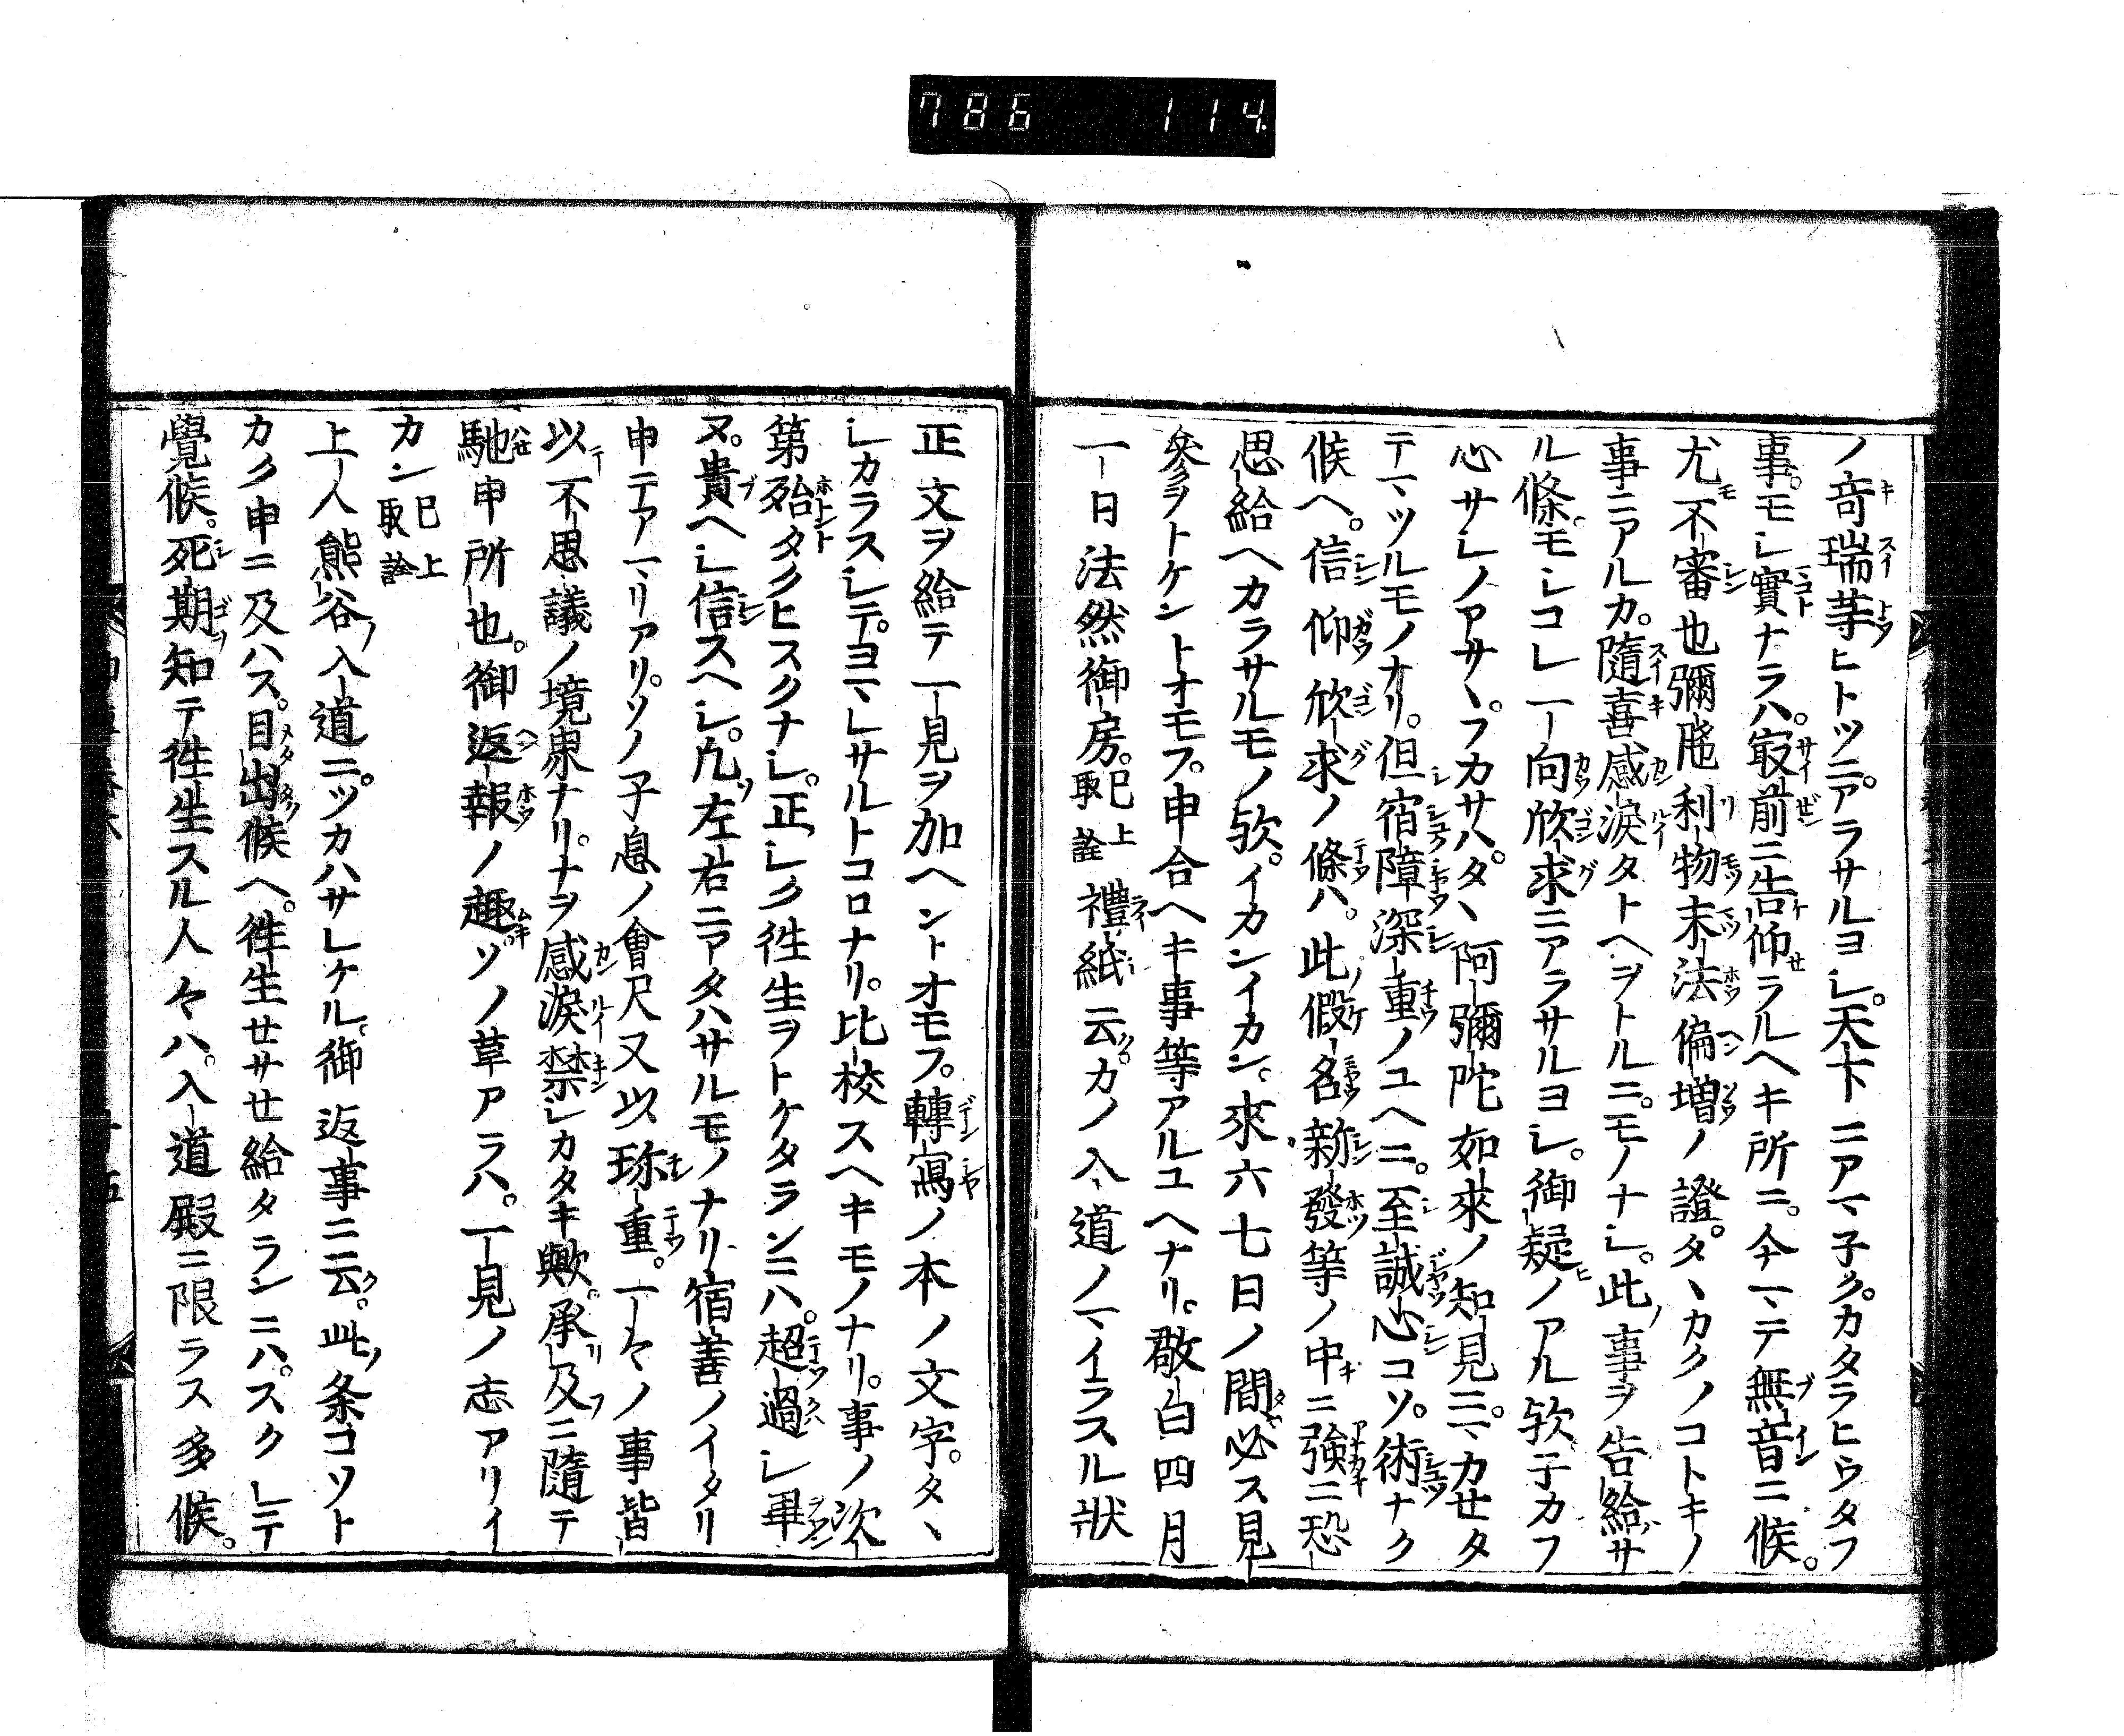 786 114
ノ奇瑞等ヒトツニアラサルヨシ。天下ニアマ子クカタラヒウタフ
事。モシ實ナラハ。冣前ニ告仰ラルヘキ所ニ。今マテ無音ニ候。
尤不審也彌陁利物末法偏増ノ證。タヽカクノコトキノ
事ニアルカ。隨喜感淚タトヘヲトルニモノナシ。此事ヲ告給サ
ル條。モシコレ一向欣求ニアラサルヨシ。御疑ノアル欤子カフ
心サシノアサヽ。フカサハ。タヽ阿彌陀如來ノ知見ニマカセタ
テマツルモノナリ。但宿障深重ノユヘニ。至誠心コソ。術ナク
候ヘ。信仰欣求ノ條ハ。此假名新發等ノ中ニ強ニ恐
思給ヘカラサルモノ欤。イカンイカン。來六七日ノ間必ス見
參ヲトケントオモフ。申合ヘキ事等アルユヘナリ。敬白四月
一日法然御房。已上取詮禮紙云。カノ入道ノマイラスル狀
正文ヲ給テ一見ヲ加ヘントオモフ。轉寫ノ本ノ文字。タヽ
シカラスシテ。ヨマレサルトコロナリ。比校スヘキモノナリ。事ノ次
第殆タクヒスクナシ。正シク徃生ヲトケタランニハ。超過シ畢
ヌ。貴ヘシ信スヘシ。凡左右ニアタハサルモノナリ宿善ノイタリ
申テアマリアリ。ソノ子息ノ會尺又以珎重。一々ノ事皆
以不思議ノ境界ナリ。ナヲ感淚禁シカタキ歟。承及ニ隨テ
馳申所也。御返報ノ趣ソノ草アラハ。一見ノ志アリイ
カン已上取詮
上人熊谷入道ニ。ツカハサレケル。御返事ニ云。此条コソト
カク申ニ及ハス。目出候ヘ。徃生セサセ給タランニハ。スクレテ
覺候。死期知テ徃生スル人々ハ。入道殿ニ限ラス多候。